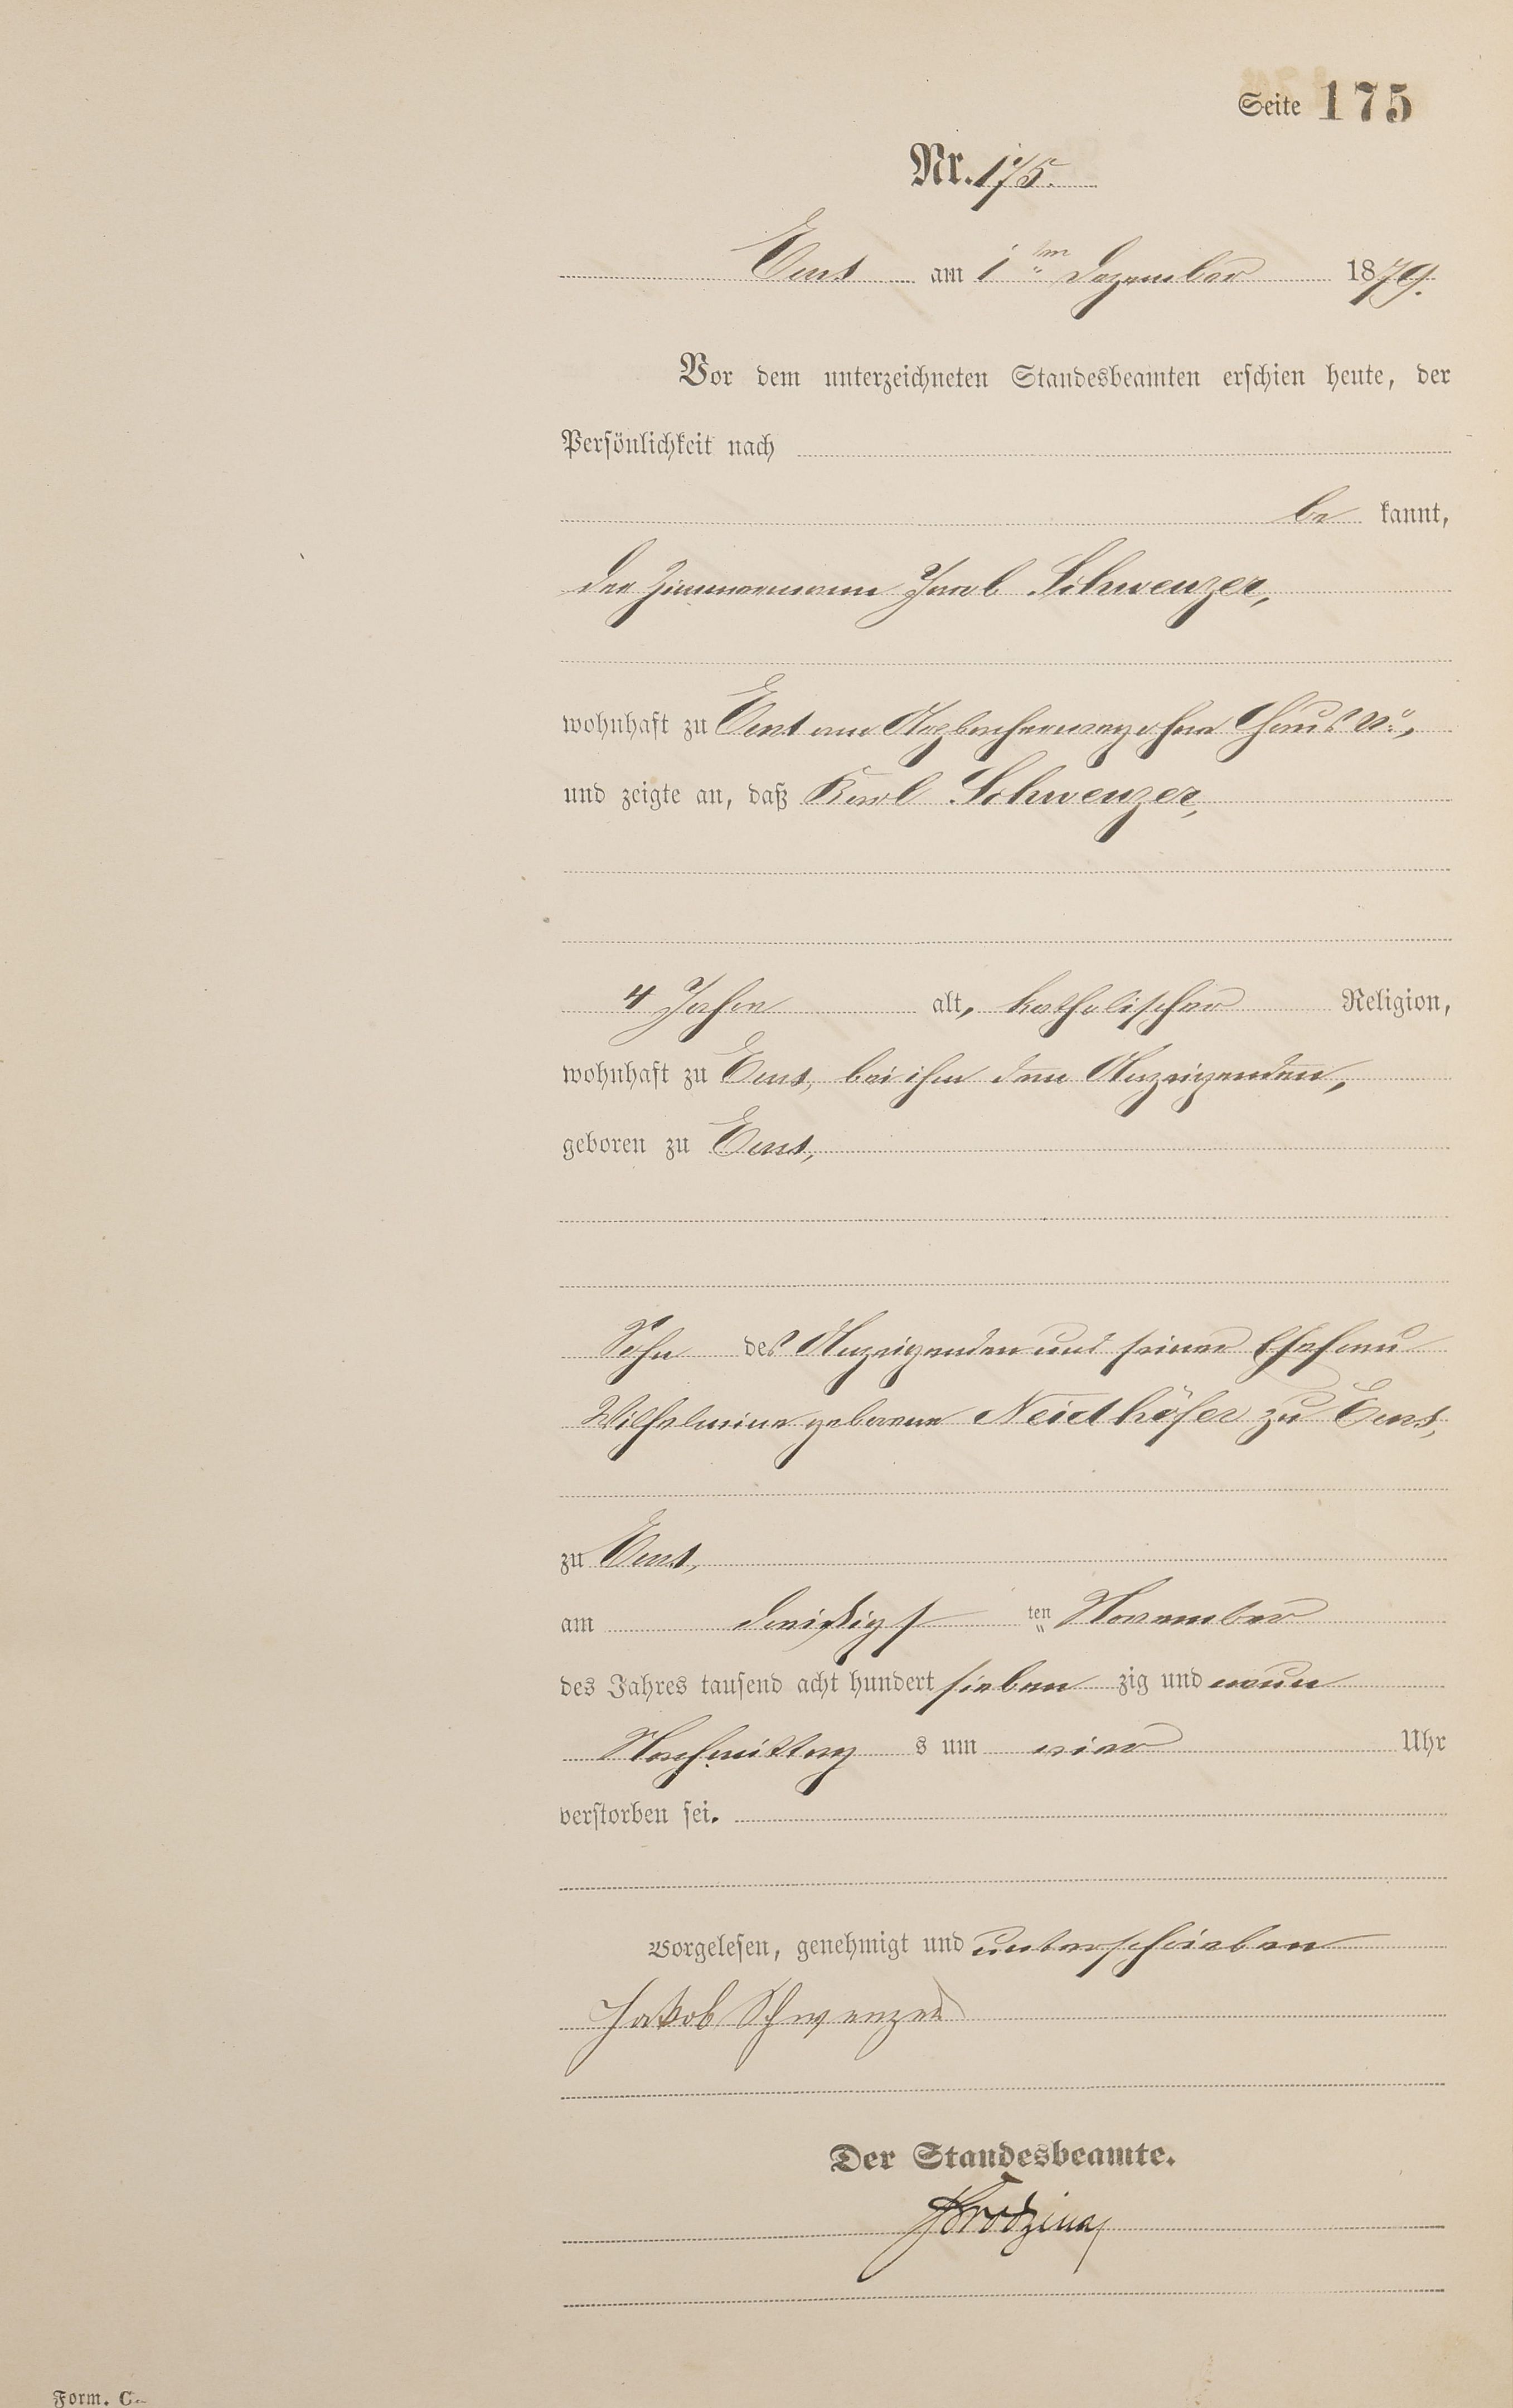 Seite 175
Nr. 175.
Ems am 1ten Dezember 1879.
Vor dem unterzeichneten Standesbeamten erschien heute, der
Persönlichkeit nach
be kannt,
der Zimmermann Jacob Schwenzer,
wohnhaft zu Ems am ohne Haus No.,
und zeigte an, daß Karl Schwenzer,
4 Jahre alt, katholischer Religion,
wohnhaft zu Ems, bei ihm dem Anzeigenden,
geboren zu Ems,
Sohn des Anzeigenden und seiner Ehefrau
Wilhelmine geborene Neidhöfer zu Ems,
zu Ems,
am dreißigsten November
des Jahres tausend acht hundert sieben zig und neun
Nachmittag s um vier Uhr
verstorben sei.
Vorgelesen, genehmigt und unterschrieben
Jakob Schwenzer
Der Standesbeamte.
Form. C.